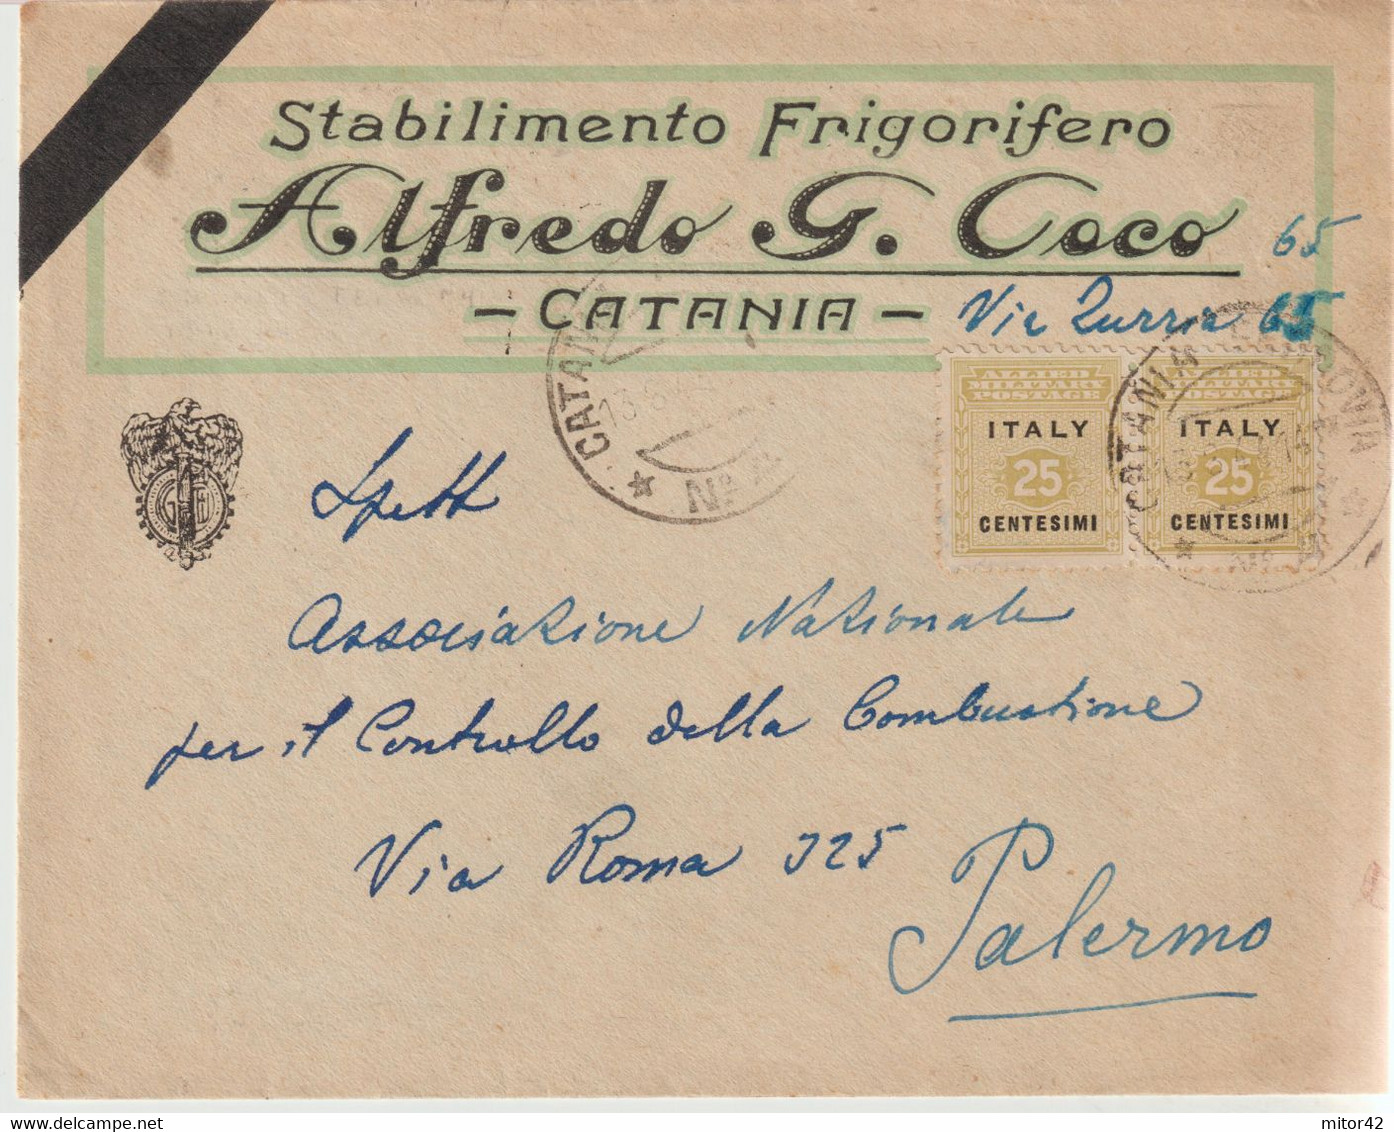 Stabilimento Frigorifero
Alfredo G. Coco
65
— CATANIA — Via Zurria 65
CATANIA
13.6.44
Nº 4
ALLIED MILITARY POSTAGE
ITALY
25
CENTESIMI
ALLIED MILITARY POSTAGE
ITALY
25
CENTESIMI
CATANIA
Spett
Associazione Nazionale
per il Controllo della Combustione
Via Roma 325
Palermo
mitor42